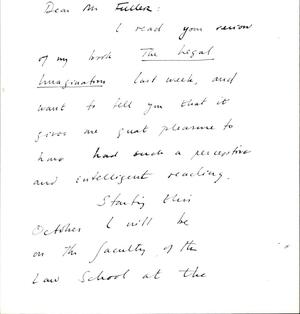 Dear Mr Fuller:
I read your review
of my book The Legal
Imagination last week, and
want to tell you that it
gives me great pleasure to
have had such a perceptive
and intelligent reading.
Starting this
October I will be
on the faculty of the
Law School at the